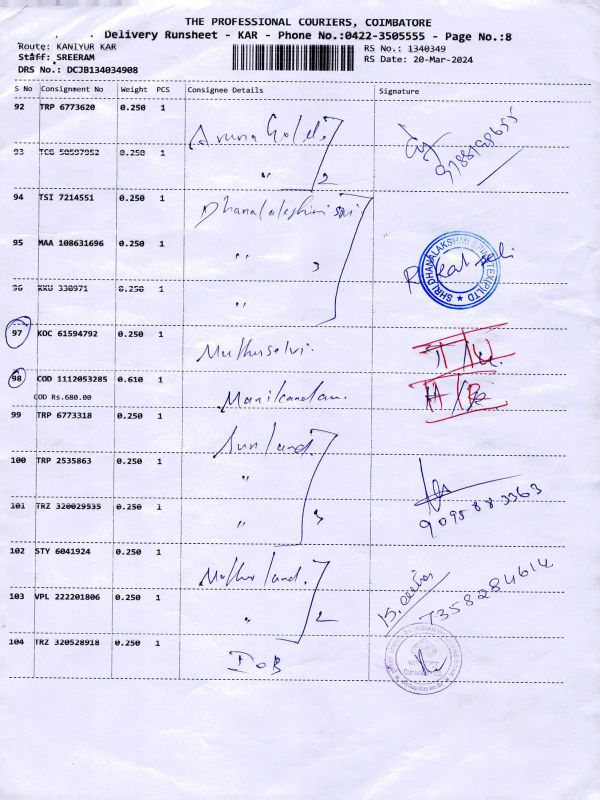 THE PROFESSIONAL COURIERS, COIMBATORE
Delivery Runsheet - KAR - Phone No.:0422-3505555 - Page No.:8
Route: KANIYUR KAR RS No.: 1340349
Staff: SREERAM RS Date: 20-Mar-2024
DRS No.: DCJB134034908
S No Consignment No Weight PCS Consignee Details Signature
92 TRP 6773620 0.250 1
Aruna Gold
93 TCG 50597952 0.250 1
" 2
94 TSI 7214551 0.250 1
Dhanalakshmi sri
95 MAA 108631696 0.250 1
" 3
SHRI DHANALAKSHMI SPINTEX(P)LTD
96 KKU 330971 0.250 1
"
97 KOC 61594792 0.250 1
Muthuselvi.
98 COD 1112053285 0.610 1
COD Rs.680.00 Manikandan.
99 TRP 4773318 0.250 1
Sun land.
100 TRP 2535863 0.250 1
"
101 TRZ 320029535 0.250 1
" 3
9095883363
102 STY 6041924 0.250 1
Motherland.
7358284614
103 VPL 222201806 0.250 1
" 2
104 TRZ 320528918 0.250 1
IOB